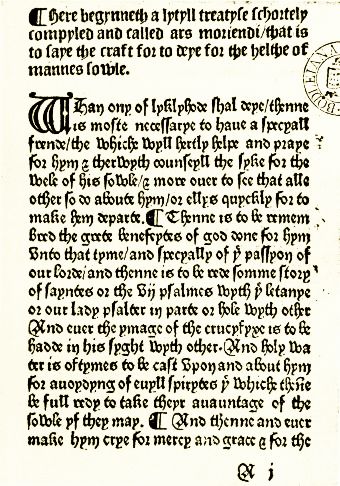 ¶ Here begynneth a lytyll treatyse schortely
compyled and called ars moriendi/that is
to saye the craft for to deye for the helthe of
mannes sowle.
Whan ony of lyklyhode shal deye/thenne
is moste necessarye to have a specyall
frende/the whiche wyll hertly helpe and praye
for hym ⁊ therwyth counseyll the syke for the
wele of his sowle/⁊ more over to see that alle
other so do aboute hym/or ellys quyckly for to
make hem departe. ¶ Thenne is to be remem
bred the grete benefeytes of god done for hym
Vnto that tyme/and specyally of yͤ passyon of
our lorde/and thenne is to be rede somme story
of sayntes or the vij psalmes wyth yͤ letanye
or our lady psalter in parte or hole wyth other
And ever the ymage of the crucyfyxe is to be
hadde in his syght wyth other. And holy wa
ter is oftymes to be cast vpon and about hym
for avoydyng of evyll spirytes yͤ whiche thēne
be full redy to take theyr avauntage of the
sowle yf they may. ¶ And thenne and ever
make hym crye for mercy and grace ⁊ for the
A j
BODLEIANA